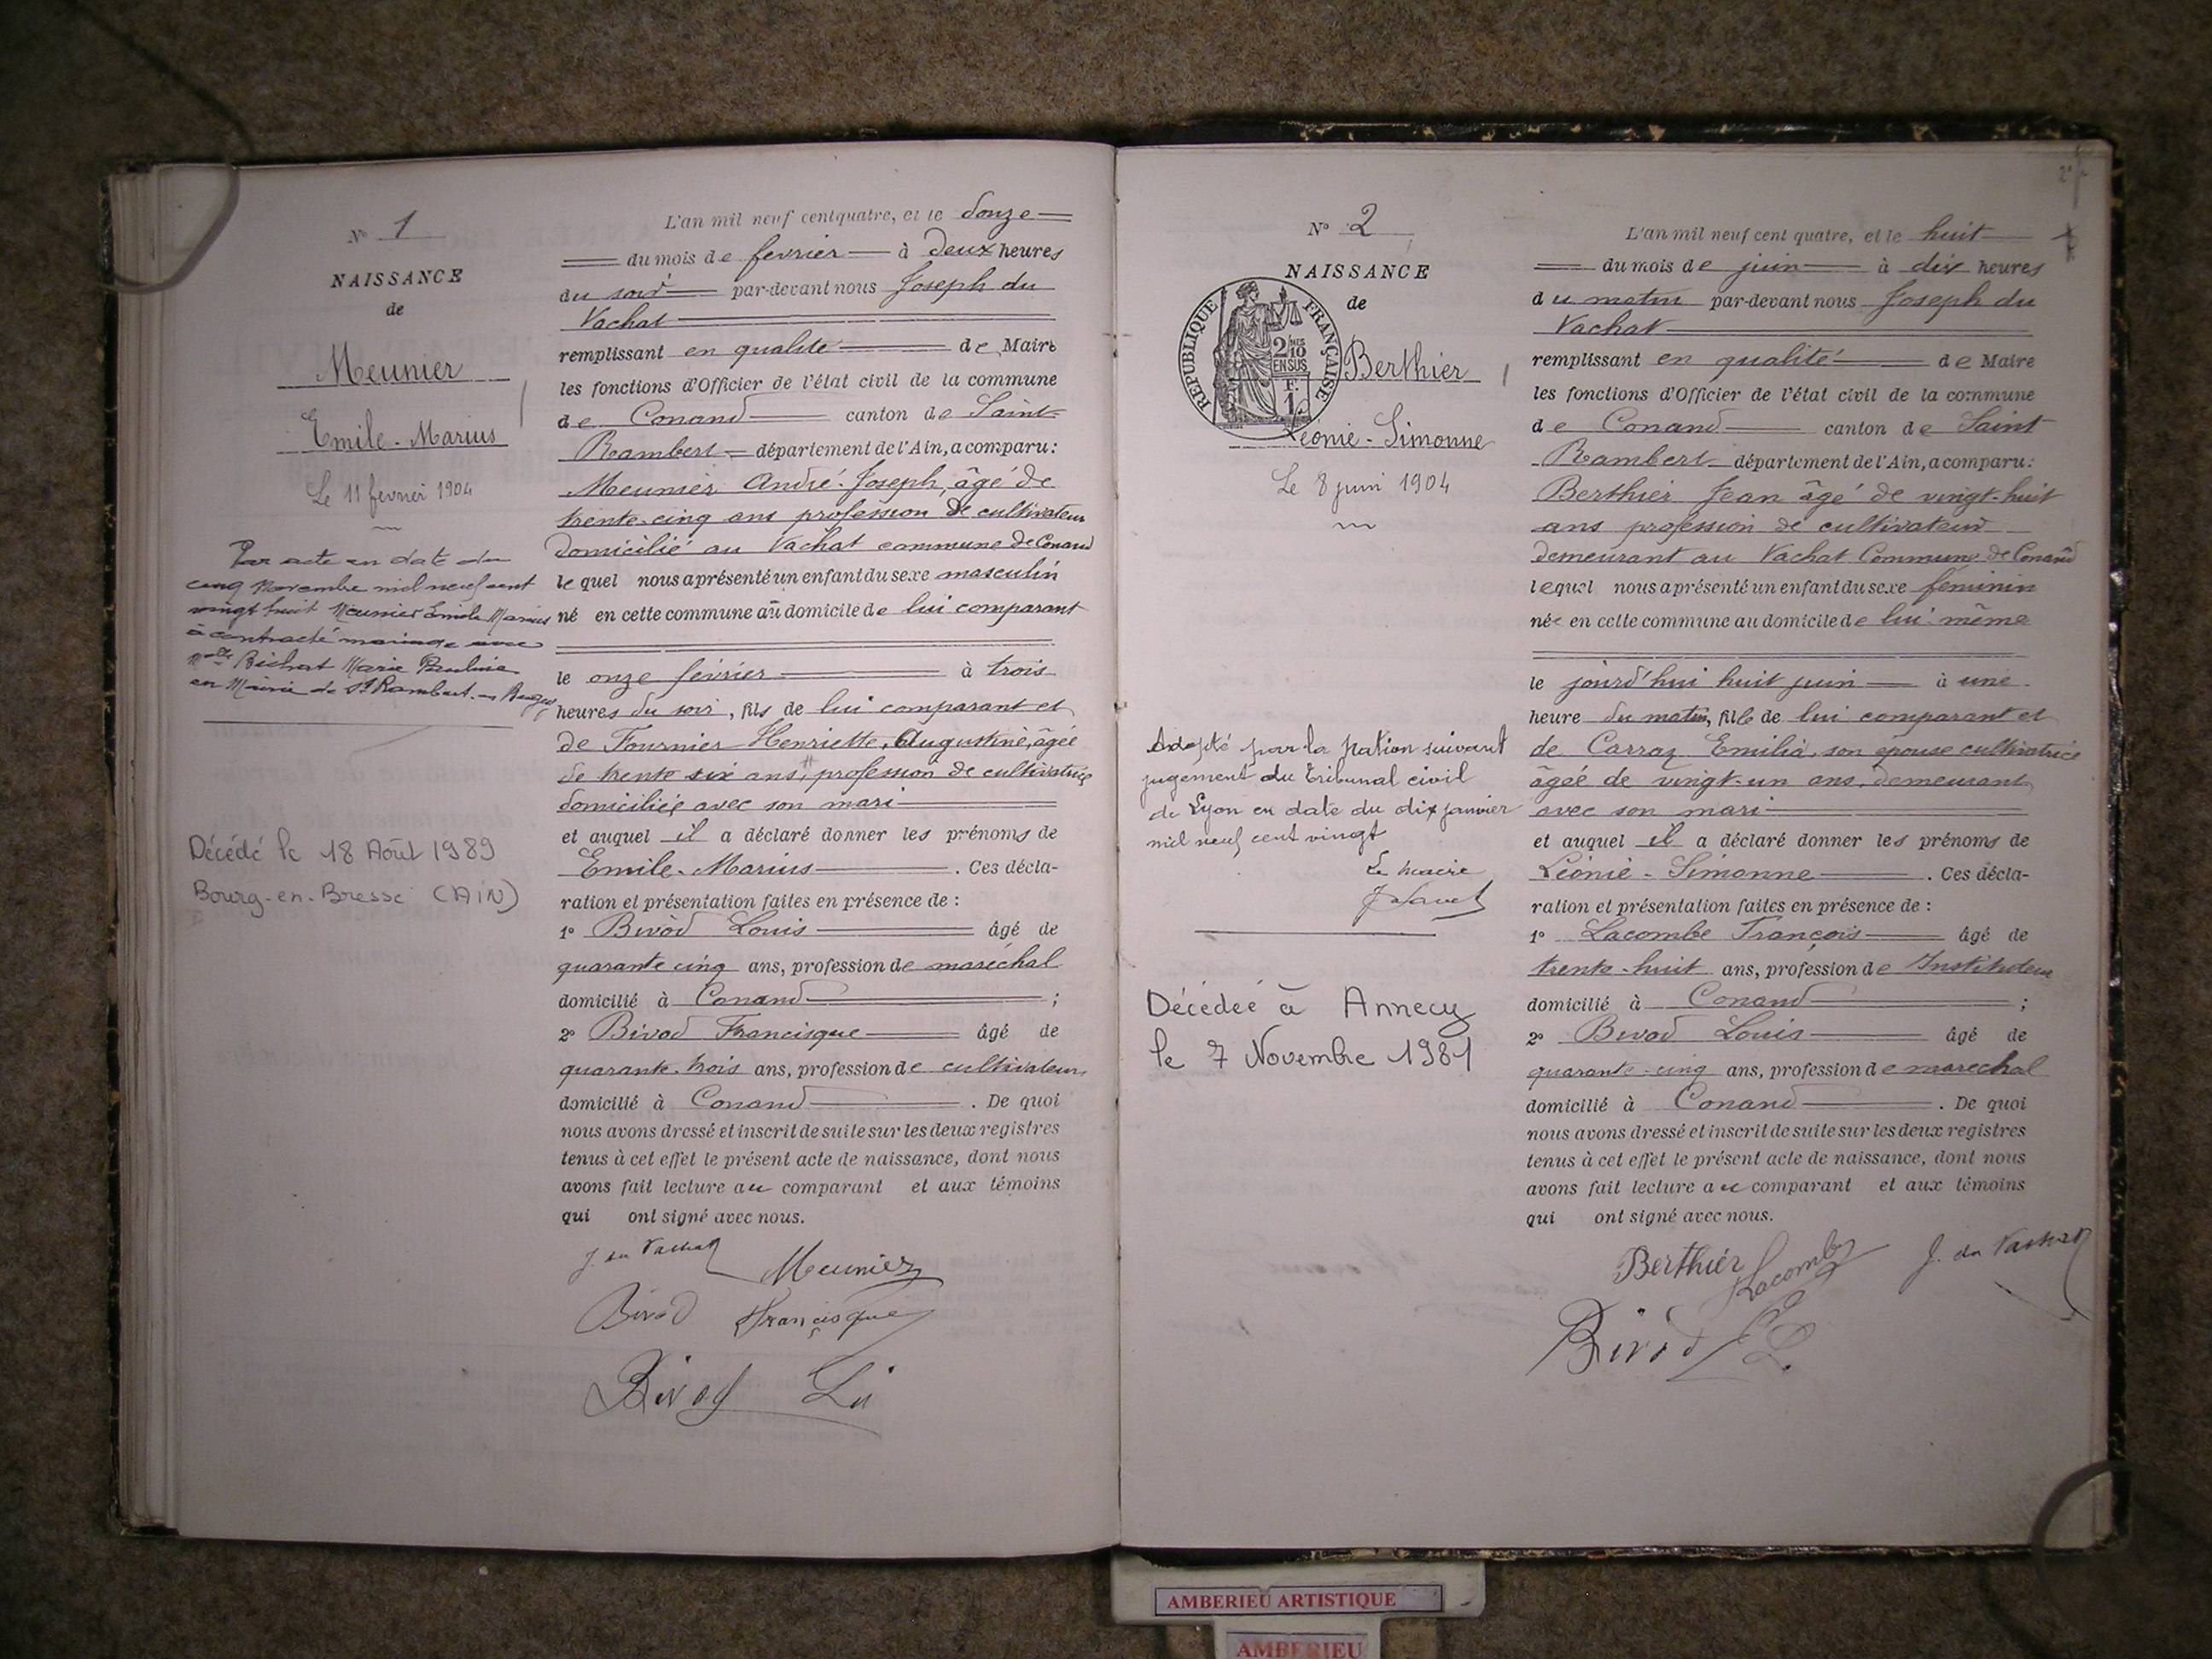 N° 1
NAISSANCE
de
Meunier
Emile-Marius
Le 11 fevrier 1904
Par acte en date du
cinq Novembre mil neuf cent
vingt huit Meunier Emile Marius
a contracté mariage avec
Bichat Marie Pauline
en Mairie de St Rambert-en-Bugey
Décédé le 18 Août 1989
Bourg-en-Bresse (AIN)
L'an mil neuf cent quatre, et le douze
du mois de fevrier à deux heures
du soir par-devant nous Joseph du
Vachat
remplissant en qualité de Maire
les fonctions d'Officier de l'état civil de la commune
de Conand canton de Saint-
Rambert département de l'Ain, a comparu:
Meunier André-Joseph, âgé de
trente-cinq ans profession de cultivateur
domicilié au Vachat commune de Conand
lequel nous a présenté un enfant du sexe masculin
né en cette commune au domicile de lui comparant
le onze février à trois
heures du soir, fils de lui comparant et
de Fournier Henriette, Augustine, âgée
de trente six ans, profession de cultivatrice
domiciliée avec son mari
et auquel il a déclaré donner les prénoms de
Emile-Marius. Ces décla-
ration et présentation faites en présence de :
1° Bivod Louis âgé de
quarante cinq ans, profession de maréchal
domicilié à Conand ;
2° Bivod Francisque âgé de
quarante-trois ans, profession de cultivateur
domicilié à Conand. De quoi
nous avons dressé et inscrit de suite sur les deux registres
tenus à cet effet le présent acte de naissance, dont nous
avons fait lecture au comparant et aux témoins
qui ont signé avec nous.
J. du Vachat
Meunier
Bivod Françisque
Bivod
N° 2
NAISSANCE
de
REPUBLIQUE FRANÇAISE
2/10 MES
EN SUS
F.
1
Berthier
Léonie-Simonne
Le 8 juin 1904
Adopté par la Nation suivant
jugement du Tribunal civil
de Lyon en date du dix janvier
mil neuf cent vingt
Le maire
Décédée à Annecy
le 7 Novembre 1981
L'an mil neuf cent quatre, et le huit
du mois de juin à dix heures
du matin par-devant nous Joseph du
Vachat
remplissant en qualité de Maire
les fonctions d'Officier de l'état civil de la commune
de Conand canton de Saint
Rambert département de l'Ain, a comparu:
Berthier Jean âgé de vingt-huit
ans profession de cultivateur
demeurant au Vachat Commune de Conand
lequel nous a présenté un enfant du sexe féminin
née en cette commune au domicile de lui-même
le jourd'hui huit juin à une
heure du matin, fille de lui comparant et
de Carraz Emilia, son épouse cultivatrice
âgée de vingt-un ans, demeurant
avec son mari
et auquel il a déclaré donner les prénoms de
Léonie-Simonne. Ces décla-
ration et présentation faites en présence de :
1° Lacombe François âgé de
trente-huit ans, profession de Instituteur
domicilié à Conand ;
2° Bivod Louis âgé de
quarante-cinq ans, profession de marechal
domicilié à Conand. De quoi
nous avons dressé et inscrit de suite sur les deux registres
tenus à cet effet le présent acte de naissance, dont nous
avons fait lecture au comparant et aux témoins
qui ont signé avec nous.
Berthier Lacombe J. du Vachat
Bivod L
AMBERIEU ARTISTIQUE
AMBERIEU